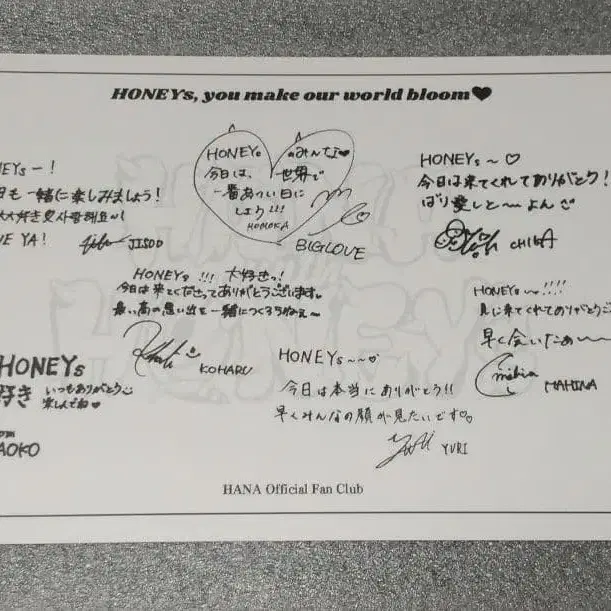 HONEYs, you make our world bloom♥
EYsー!
も一緒に楽しみましょう!
大好き 사랑해요~!
E YA! JISOO
HONEYsのみんな♥
今日は、世界で
一番あつい日に
しよう!!!
MOMOKA
BIGLOVE
HONEYs~♡
今日は来てくれてありがとう!
ばり愛しと~よん
CHIKA
HONEYs!!! 大好きっ!
今日は来てくださってありがとうございます。
最っ高の思い出を一緒につくろうねぇ~
KOHARU
HONEYs~!!!!
見に来てくれてありがとう
早く会いたぁ~~
mahina MAHINA
HONEYs
好き いつもありがとう
楽しんでね♥
om
AOKO
HONEYs~~♡
今日は本当にありがとう!!
早くみんなの顔が見たいです♡♡
YURI
HANA Official Fan Club